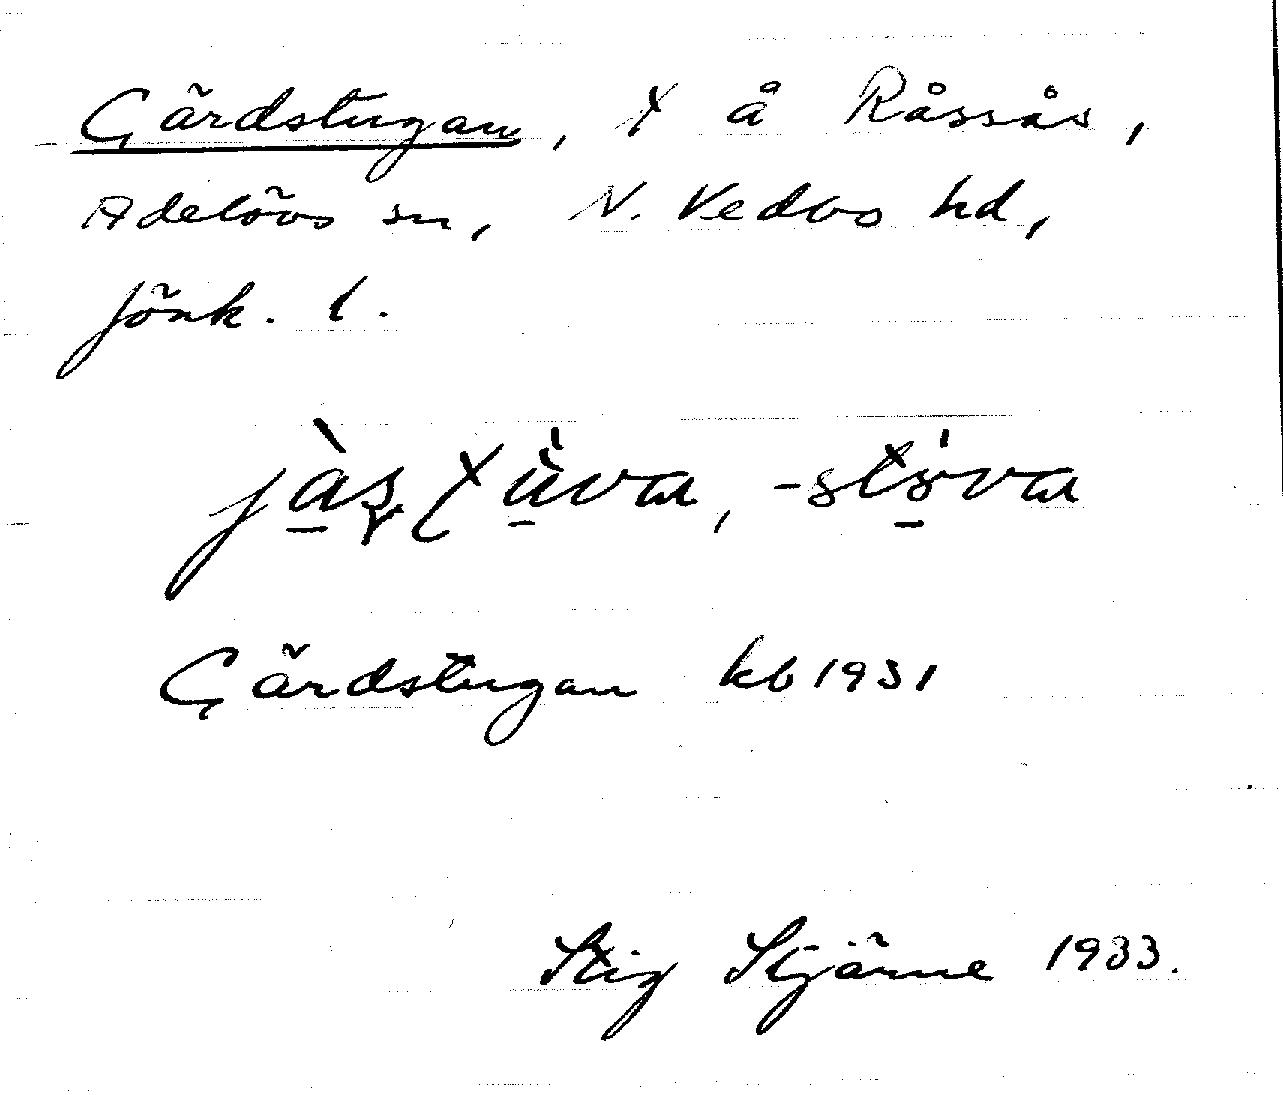 Gärdstugan, t å Råssås,
Adelövs sn, N. Vedbo hd,
Jönk. l.
Gärdstugan kb 1931
Stig Stjärne 1933.